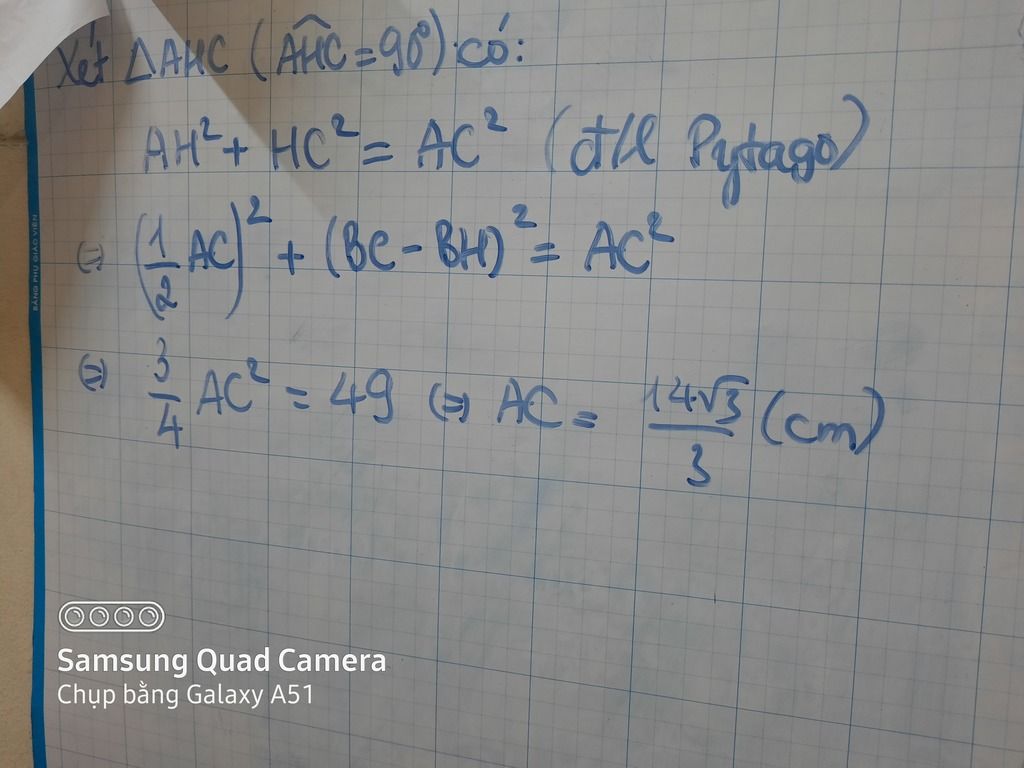 Xét ΔAHC (AHC = 90°) có:
AH² + HC² = AC² (đ/l Pytago)
(=) (1/2 AC)² + (BC - BH)² = AC²
(=) 3/4 AC² = 49 (=) AC = 14√3/3 (cm)
BẢNG PHỤ GIÁO VIÊN
Samsung Quad Camera
Chụp bằng Galaxy A51